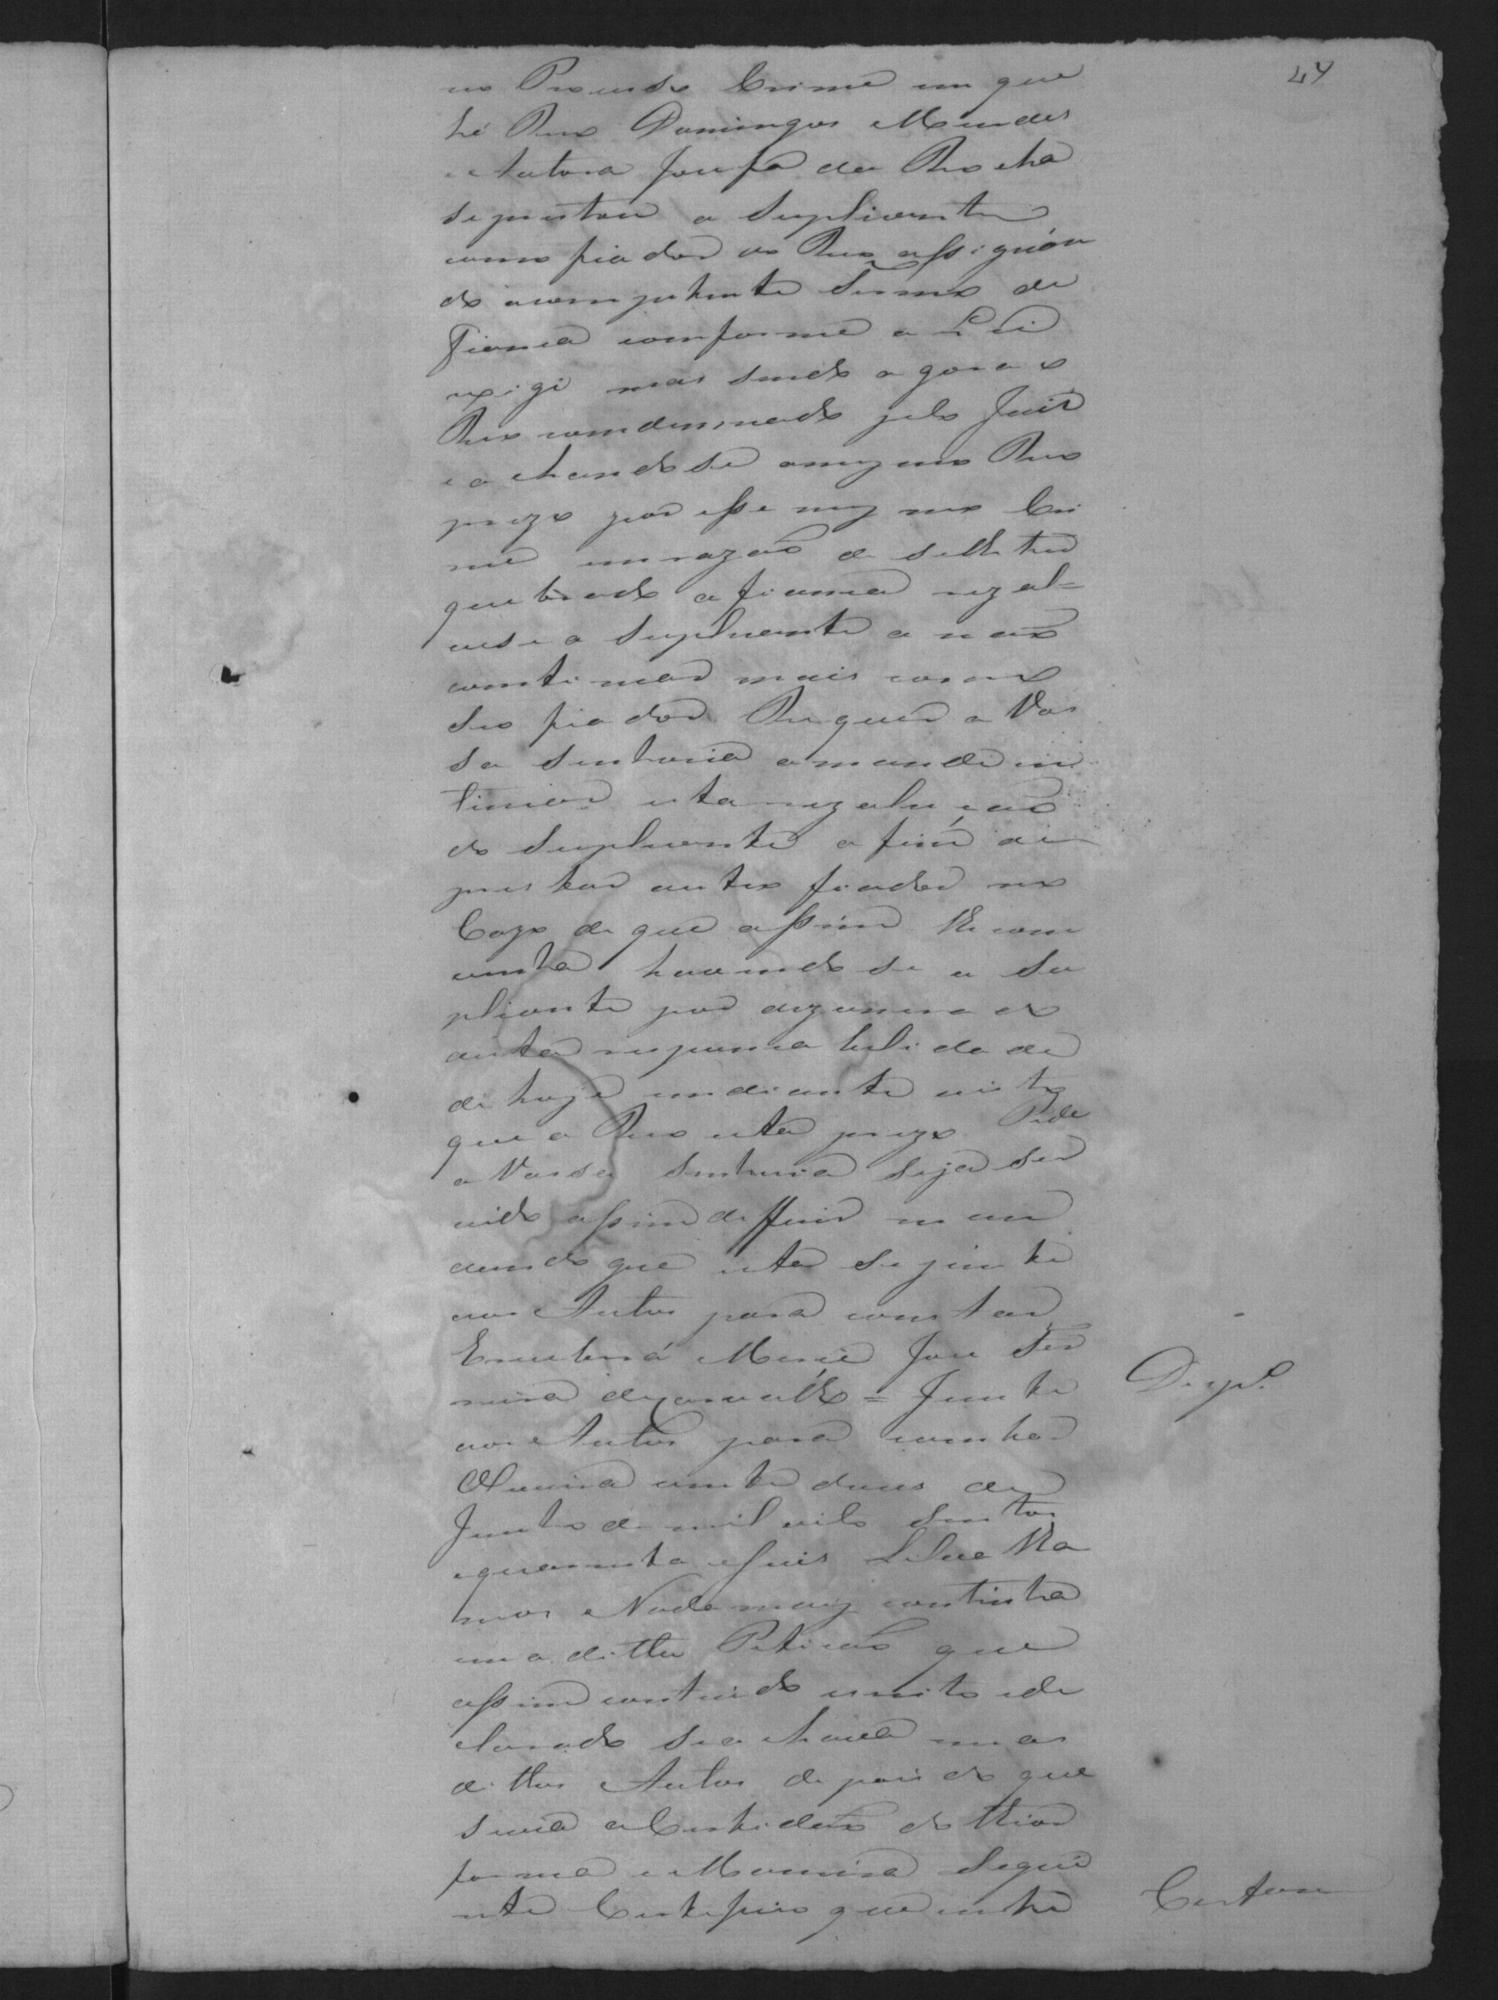 44
no Prosesso Crime em que
hé Reo Domingos Mendes
e Autora Josefa da Rocha
se prestou o Suplicante
como fiador do Reo assignan
do a competente Termo de
Fianca comforme a Lei
exige mas sendo agora o
Reo comdemnado pelo Juis
e achandose o mezmo Reo
prezo por esse mezmo Cri
me em razaõ de selhe ter
quebrado a fianca rezol=
vese o Suplicante a naõ
continuar mais como
seo fiador Requer a Vos
sa Senhoria a mande in
timar esta rezolucaõ
do Suplicante a fim de
prestar outro fiador no
Cazo de que assim lhe com
venha havendo se o Su
plicante por dezonera do
desta responsabelidade
de hoje em diante visto
que o Reo esta prezo Pede
a Vossa Senhoria Seja Ser
vido assim deffirir man
dando que esta se junte
aos Autos para constar
E receberá Merce Jose Fer
reira de Carvalho = Junte
Desp.º
aos Autos para constar
Oeiras vinte douis de
Junho de mil oito Sentos
e quarenta e seis Silva Ra
mos Nada mais continha
em a ditta Peticaõ que
assim contiudo escrito e de
clarado se achava em os
dittos Autos depois do que
se via a Certidaõ do theor
forma e Maneira Segui
nte Certefico que intei
Certam